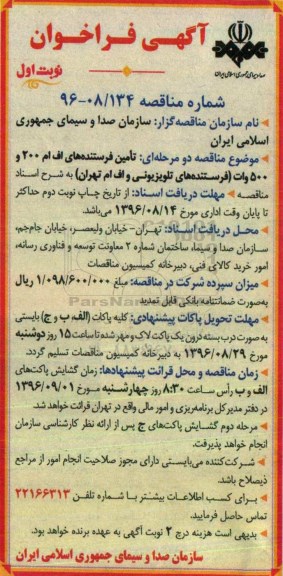 آگهی فراخوان
صدا و سیمای جمهوری اسلامی ایران
نوبت اول
شماره مناقصه ۹۶-۰۸/۱۳۴
نام سازمان مناقصه‌گزار: سازمان صدا و سیمای جمهوری
اسلامی ایران
موضوع مناقصه دو مرحله‌ای: تأمین فرستنده‌های اف ام ۲۰۰ و
۵۰۰ وات (فرستنده‌های تلویزیونی و اف ام تهران) به شرح اسناد
مناقصه مهلت دریافت اسناد: از تاریخ چاپ نوبت دوم حداکثر
تا پایان وقت اداری مورخ ۱۳۹۶/۰۸/۱۴ می‌باشد.
محل دریافت اسناد: تهران - خیابان ولیعصر، خیابان جام‌جم،
سازمان صدا و سیما، ساختمان شماره ۲ معاونت توسعه و فناوری رسانه،
امور خرید کالای فنی، دبیرخانه کمیسیون مناقصات
میزان سپرده شرکت در مناقصه: مبلغ ۱/۰۹۸/۶۰۰/۰۰۰ ریال
به‌صورت ضمانتنامه بانکی قابل تمدید
مهلت تحویل پاکات پیشنهادی: کلیه پاکات (الف، ب و ج) بایستی
به صورت درب بسته درون یک پاکت لاک و مهر شده تا ساعت ۱۵ روز دوشنبه
مورخ ۱۳۹۶/۰۸/۲۹ به دبیرخانه کمیسیون مناقصات تسلیم گردد.
زمان مناقصه و محل قرائت پیشنهادها: زمان گشایش پاکت‌های
الف و ب رأس ساعت ۸:۳۰ روز چهارشنبه مورخ ۱۳۹۶/۰۹/۰۱
در دفتر مدیرکل برنامه‌ریزی و امور مالی واقع در تهران قرائت خواهد شد.
مرحله دوم گشایش پاکت‌های ج پس از ارائه نظر کارشناسی سازمان
انجام خواهد پذیرفت.
شرکت‌کننده می‌بایستی دارای مجوز صلاحیت انجام امور از مراجع
ذیصلاح باشد.
برای کسب اطلاعات بیشتر با شماره تلفن ۲۲۱۶۶۳۱۳
تماس حاصل فرمایید.
بدیهی است هزینه درج ۲ نوبت آگهی به عهده برنده خواهد بود.
سازمان صدا و سیمای جمهوری اسلامی ایران